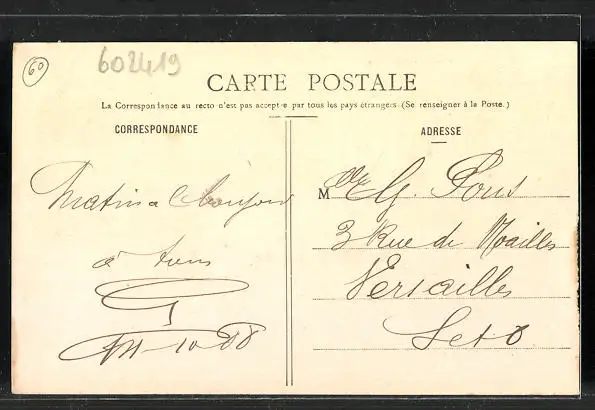 60
602419
CARTE POSTALE
La Correspondance au recto n'est pas acceptée par tous les pays étrangers. (Se renseigner à la Poste.)
CORRESPONDANCE
ADRESSE
M lle G. Pons
3 Rue de Noailles
Versailles
S et O
à tous